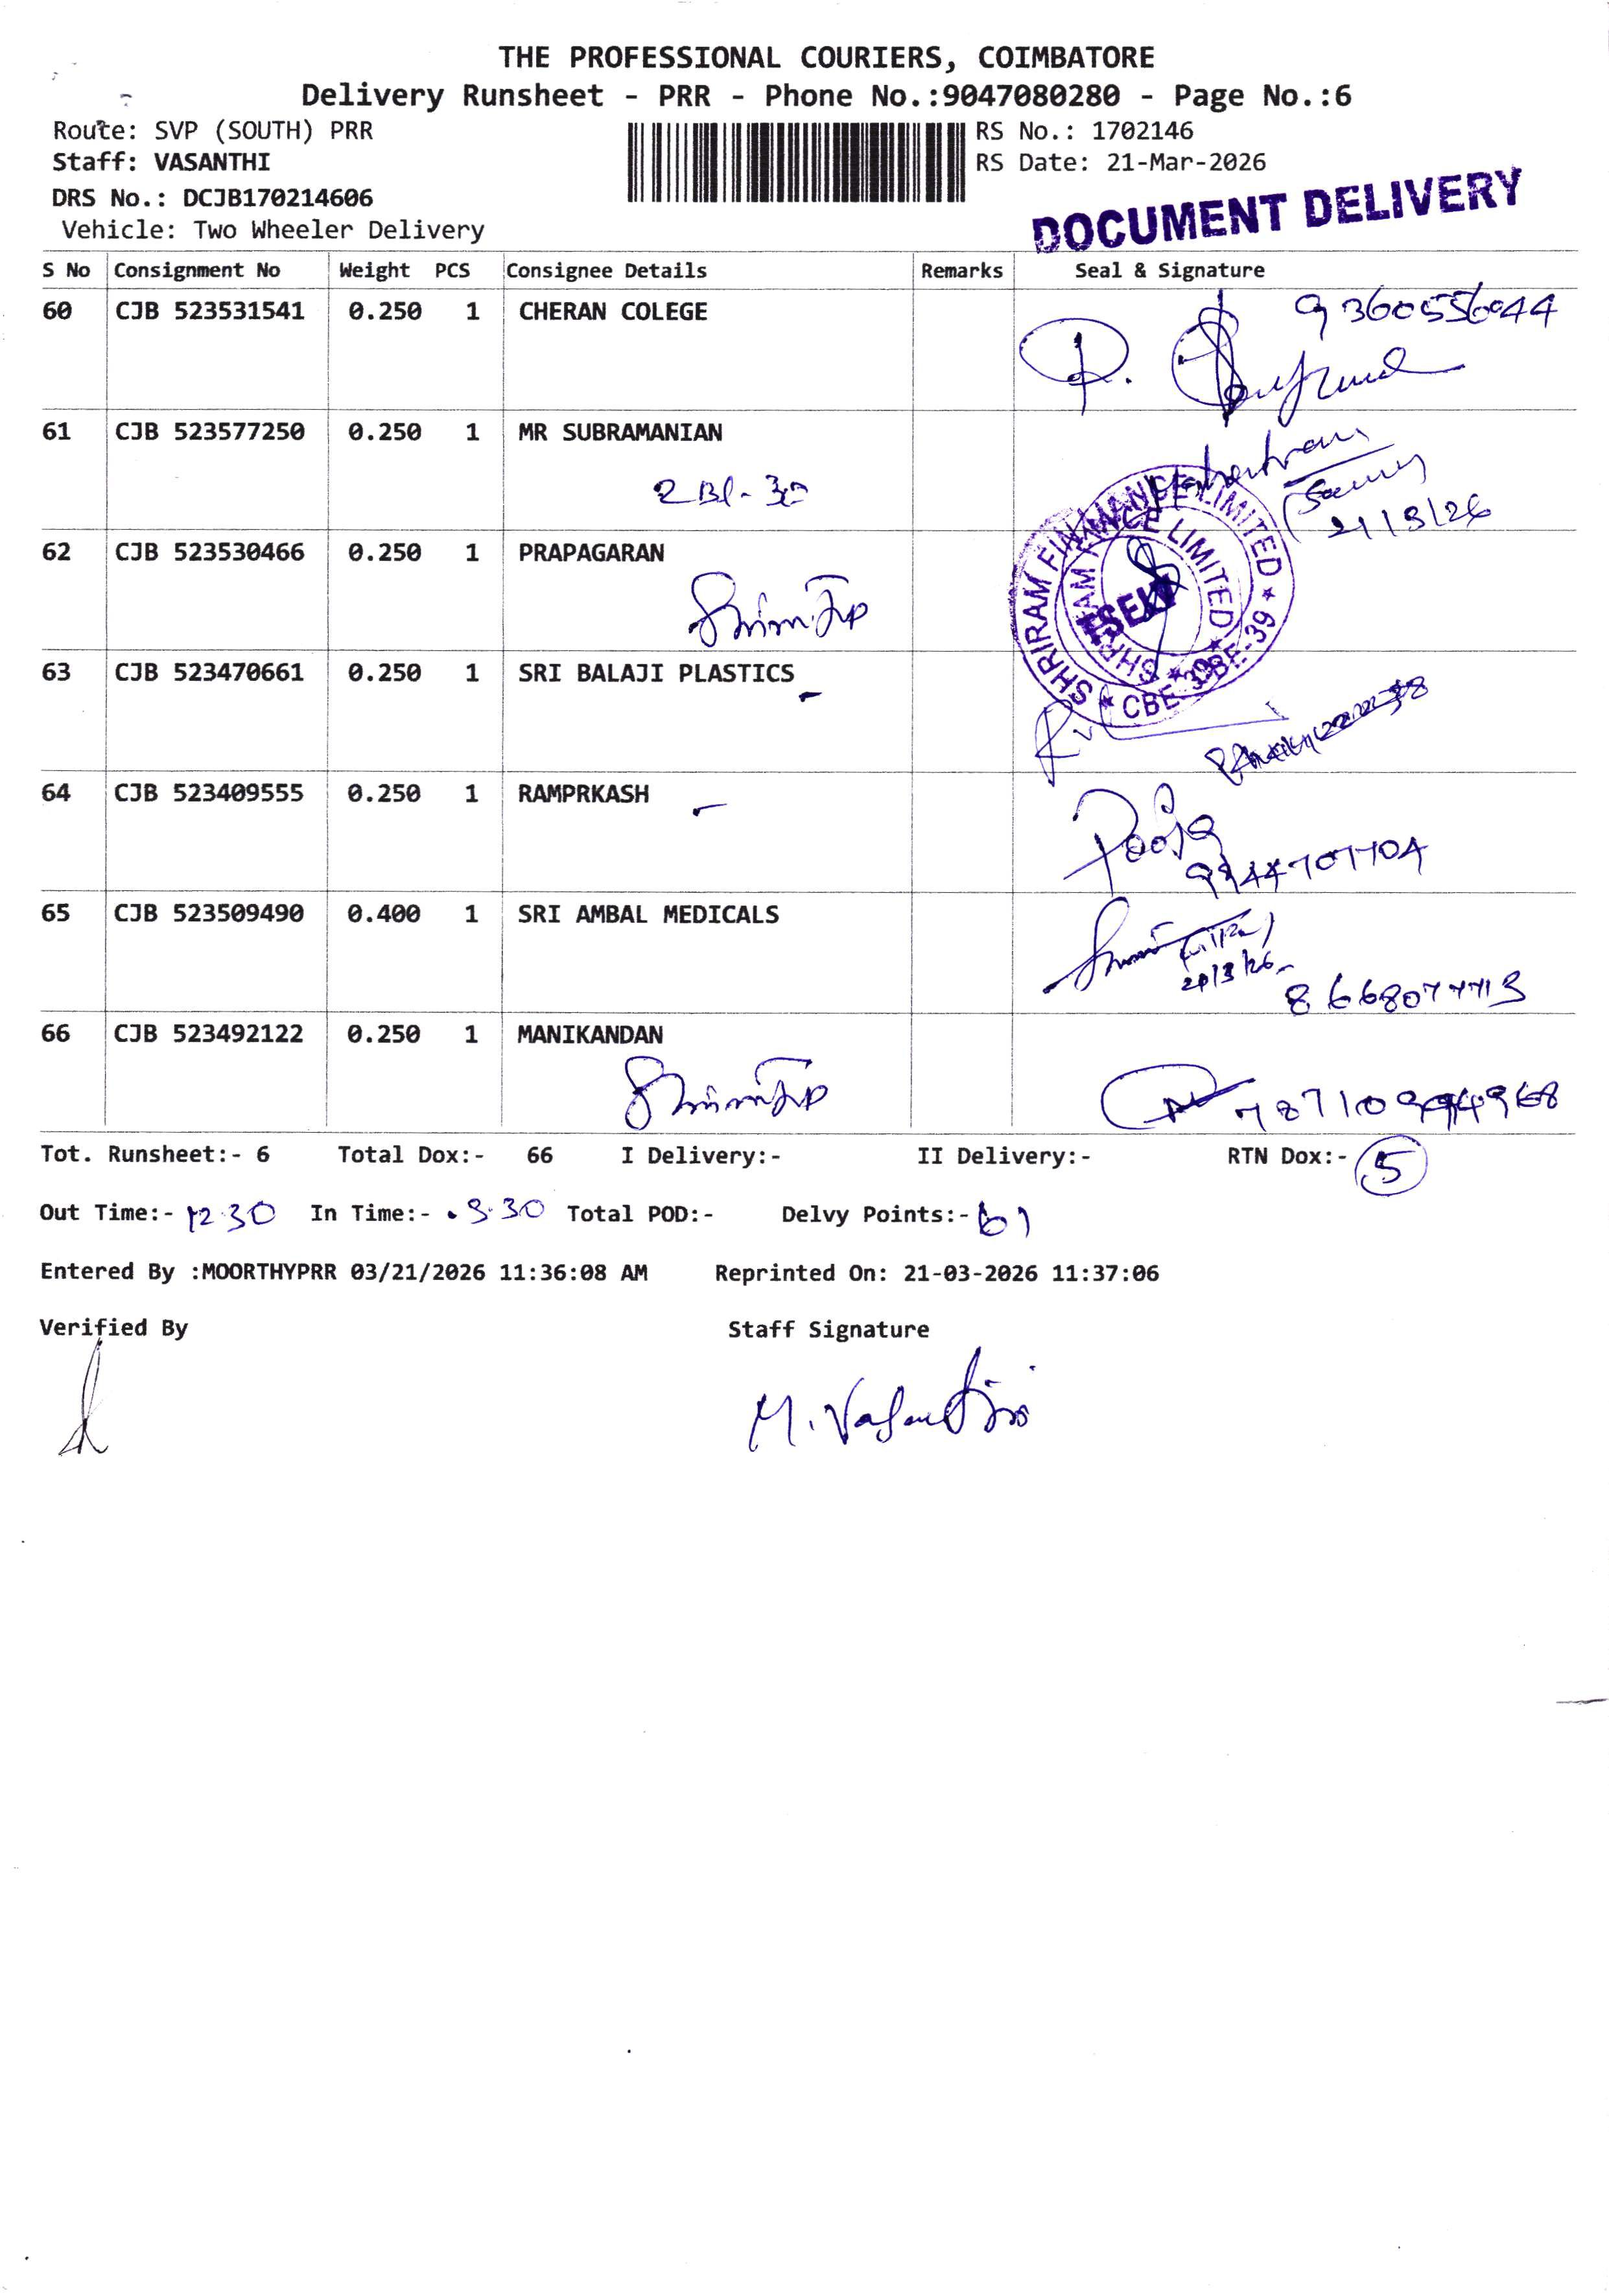 THE PROFESSIONAL COURIERS, COIMBATORE
Delivery Runsheet - PRR - Phone No.:9047080280 - Page No.:6
Route: SVP (SOUTH) PRR
RS No.: 1702146
Staff: VASANTHI
RS Date: 21-Mar-2026
DRS No.: DCJB170214606
DOCUMENT DELIVERY
Vehicle: Two Wheeler Delivery
S No Consignment No Weight PCS Consignee Details Remarks Seal & Signature
60 CJB 523531541 0.250 1 CHERAN COLEGE
9360556044
61 CJB 523577250 0.250 1 MR SUBRAMANIAN
21/3/26
62 CJB 523530466 0.250 1 PRAPAGARAN
SHRIRAM FINANCE LIMITED
CBE-39
63 CJB 523470661 0.250 1 SRI BALAJI PLASTICS
64 CJB 523409555 0.250 1 RAMPRKASH
Pooja
9944707704
65 CJB 523509490 0.400 1 SRI AMBAL MEDICALS
66 CJB 523492122 0.250 1 MANIKANDAN
Tot. Runsheet:- 6 Total Dox:- 66 I Delivery:- II Delivery:- RTN Dox:- 5
Out Time:- 12 30 In Time:- 3.30 Total POD:- Delvy Points:- 61
Entered By :MOORTHYPRR 03/21/2026 11:36:08 AM Reprinted On: 21-03-2026 11:37:06
Verified By Staff Signature
M. Vasanthi